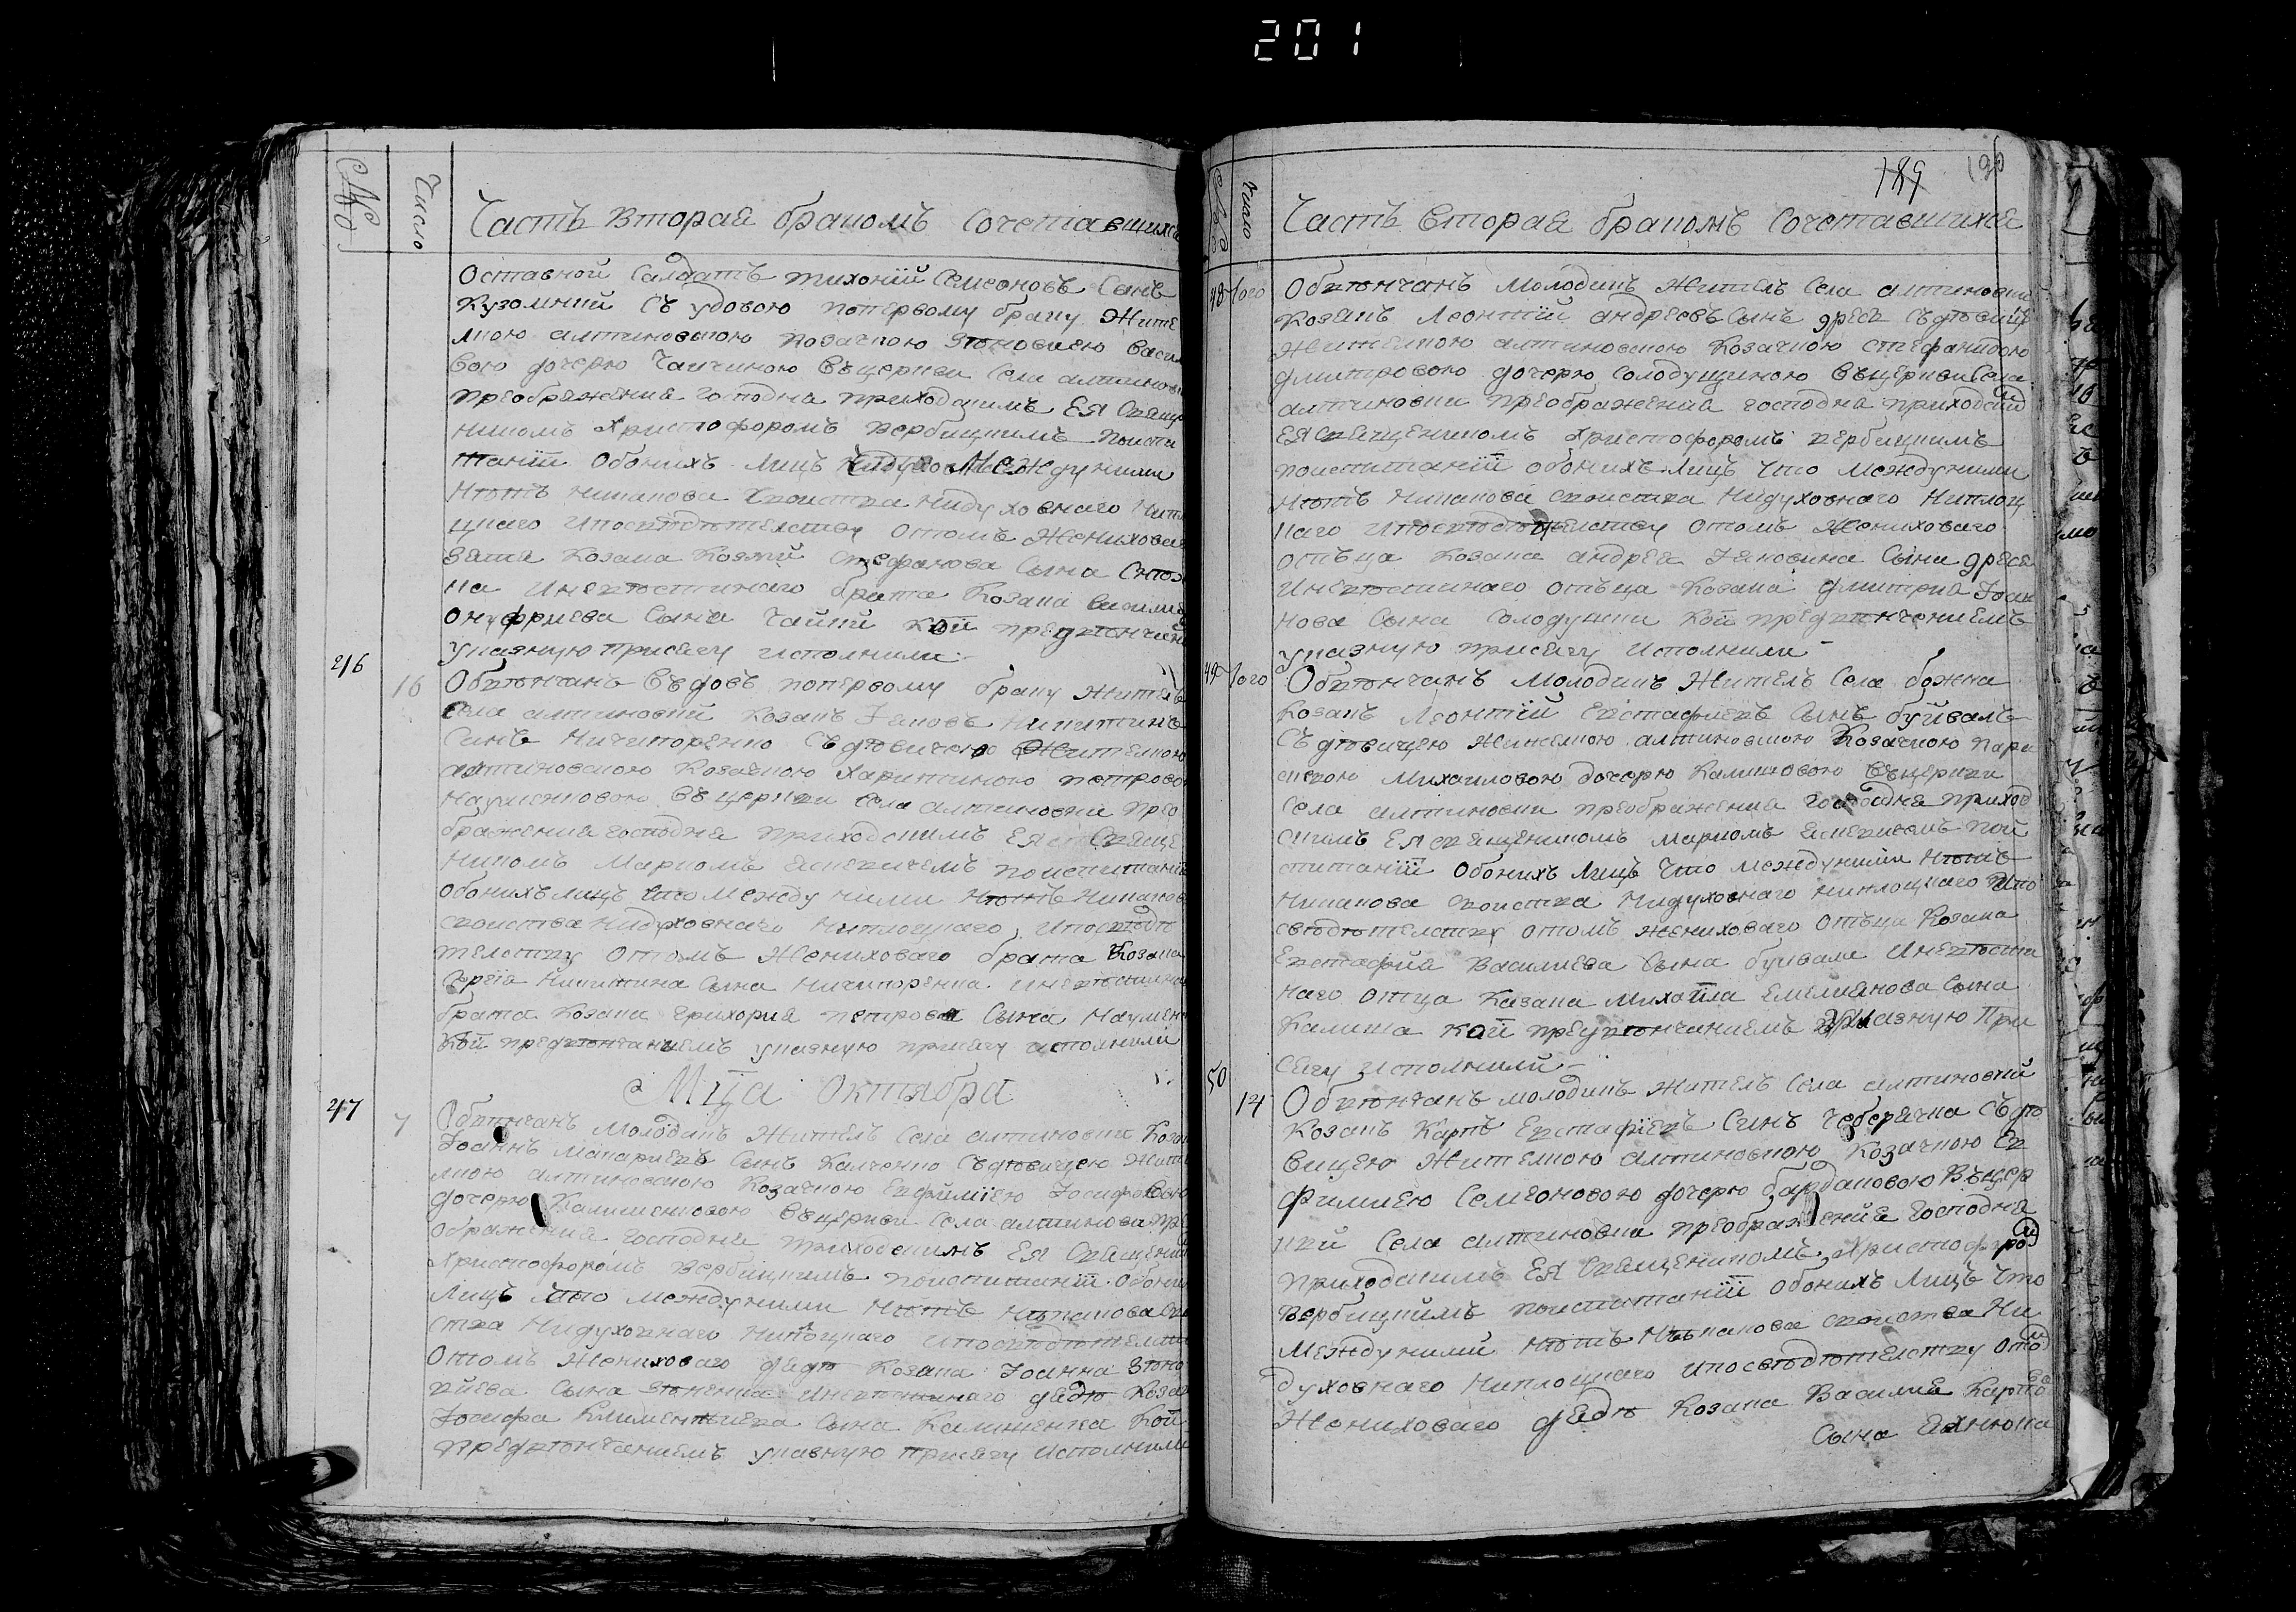 201
№
Число
Часть Вторая браномъ Сочетавшихся
Оставной Салдатъ тихоній Семеоновъ Сынъ
Кузомній Съ удовою поперьвому браку Жите
лкою алтиновскою козачкою Васил
вою дочерю Чайчиною Въцеркви Села алтиновки
преображения господня приходскимъ ЕЯ Свяще
никомъ Христофоромъ вербицкимъ поиспи
таніи обоихъ лицъ Междуними
Нѣтъ никакова своиства нидуховнаго нипло
цкаго ипосвѣдѣтелству отомъ Жениховаго
зятя козака стефанова Сына
на Иневѣстинаго брата козака василия
онуфриева Сына Чайки кои предвѣнчани
указную присягу исполнили
46
16
Обвѣнчанъ вдовъ поперьвому браку Жителъ
Села алтиновки козакъ Яковъ Никитинъ
Синъ Ничипоренко Съдѣвицею Жителкою
алтиновскою козачкою Харитиною петрово
Науменковою Въцеркви Села алтиновки прео
бражения господня приходскимъ ЕЯ Свяще
никомъ Маркомъ поиспитаніи
обоихълицъ что между ними Нѣтъ никаков
своиства нидуховнаго ниплоцкаго ипосвѣдѣ
телству отомъ Жениховаго брата козака
Сергія Никитина Сына Ничипоренка иневѣстина
брата козака григория петрова Сына Наумен
Кои предвѣнчаниемъ указную присягу исполнили
Мца октября
47
7
Обвѣнчанъ Молодикъ Жителъ Села алтиновки коза
Іоаннъ макариевъ Сынъ Калченко Съдѣвицею Жите
лкою алтиновскою козачкою Евфиміею Іосифовою
дочерю Калишенковою Въцеркви Села алтиновки пре
ображения господня приходскимъ ЕЯ Священни
Христофоромъ вербицкимъ поиспитаніи обоихъ
Лицъ что междуними Нѣтъ никакова свои
ства нидуховнаго ниплоцкаго ипосвѣдѣтелст
отомъ Жениховаго дядѣ козака Іоанна
Сына иневѣстинаго дядѣ козак
Іосифа Климентиева Сына Калишенка Кои
предвѣнчаниемъ указную присягу исполнили
189 190
№
Число
Часть вторая браномъ Сочетавшихся
48
10го
Обвѣнчанъ Молодикъ Жителъ Села алтиновки
козакъ Леонтій андреевъ Сынъ Съдѣвиц
Жителкою алтиновскою козачкою стефанидою
дмитровою дочерю Солодущиною Въцеркви Села
алтиновки преображения господня приходским
ЕЯ священикомъ Христофоромъ вербицкимъ
поиспитаніи обоихъ Лицъ что междуними
Нѣтъ никакова своиства нидуховнаго ниплоц
каго ипосвѣдѣтелству отомъ Жениховаго
отъца козака андрея Яковина Сына
Иневѣстинаго отъца козака дмитрия Іоан
нова Сына Солодушки Кои предвѣнчаниемъ
указную присягу исполнили
49
10го
Обвѣнчанъ Молодикъ Жителъ Села божка
козакъ Леонтій евстафиевъ Сынъ буйвалъ
Съдѣвицею Жителкою алтиновскою козачкою пара
скевою Михаиловою дочерю Калишовою Въцеркви
Села алтиновки преображения господня приход
скимъ ЕЯ священикомъ маркомъ пои
спитаніи обоихъ Лицъ что междуними Нѣтъ
никакова своиства нидуховнаго ниплоцкаго ипо
свѣдѣтелству отомъ жениховаго отъца козака
Евстафия василиева Сына буйвала иневѣсти
наго отца козака михаила емелиянова Сына
Калиша кои предвѣнчаниемъ указную при
сягу исполнили
50
14
Обвѣнчанъ молодикъ жителъ Села алтиновки
козакъ Карпъ Евстафиевъ Синъ чеберячка Съдѣ
вицею Жителкою алтиновскою козачкою Ев
фимиею Семеоновою дочерю бардаковою Въцер
кви Села алтиновки преображения господня
приходскимъ ЕЯ Священикомъ Христофором
вербицкимъ поиспитаніи обоихъ Лицъ что
междуними Нѣтъ никакова своиства ни
духовнаго ниплоцкаго ипосвѣдѣтелству отом
Жениховаго дядѣ козака Василия Карпова
Сына